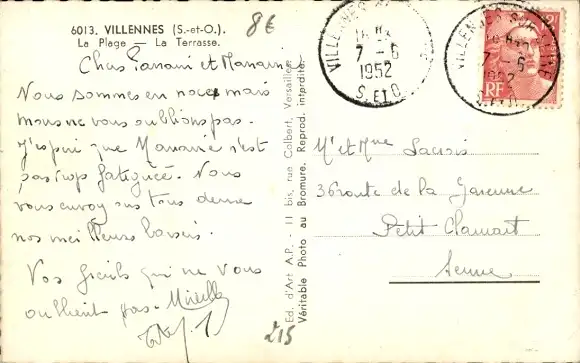 6013. VILLENNES (S.-et-O.).
La Plage — La Terrasse.
8€
Chers Parrain et Marraine
Nous sommes en noces mais
nous ne vous oublions pas.
J'espère que Marraine n'est
pas trop fatiguée. Nous
vous envoyons tous deux
nos meilleurs baisers.
Vos qui ne vous
oublient pas. Mireille
215
Ed. d'Art A.P. - 11 bis, rue Colbert, Versailles
Véritable Photo au Bromure. Reprod. interdite.
VILLENNES
7 - 6
1952
S. ET O.
VILLENNES SUR SEINE
7 - 6
1952
RF
Mr et Mme Lacroix
36 route de la Garenne
Petit Clamart
Seine